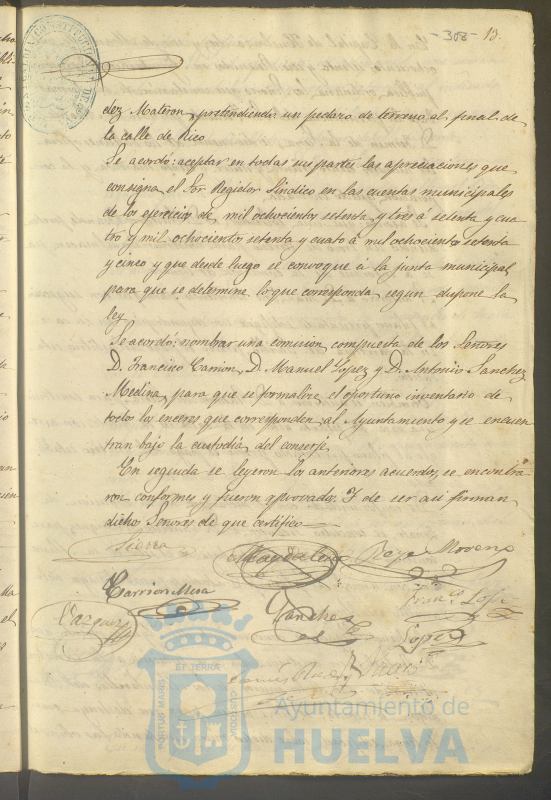 - 308 - 13.
dez Materon, pretendiendo un pedazo de terreno al final de
la calle de Rico
Se acordó: aceptar en todas sus partes las apreciaciones que
consigna el Sor Regidor Sindico en las cuentas municipales
de los ejercicios de mil ochocientos setenta y tres á setenta y cua
tro y mil ochocientos setenta y cuato á mil ochocientos setenta
y cinco y que desde luego se convoque á la junta municipal
para que se determine lo que corresponda segun dispone la
ley
Se acordó: nombrar una comision compuesta de los Señores
D. Francisco Carrion, D. Manuel Lopez y D. Antonio Sanchez
Medina, para que se formalize el oportuno inventario de
todos los enceres que corresponden al Ayuntamiento y se encuen
tran bajo la custodia del conserje
En seguida se leyeron los anteriores acuerdos, se encontra
ron conformes y fueron aprovados. Y de ser asi firman
dichos Señores de que certifico
Magdalena Rojo Moreno
Carrion Mesa
Vazquez Sanchez Franco Lopez
Lopez
ET TERRÆ
PORTUS MARIS
CUSTODIA
Ayuntamiento de
HUELVA